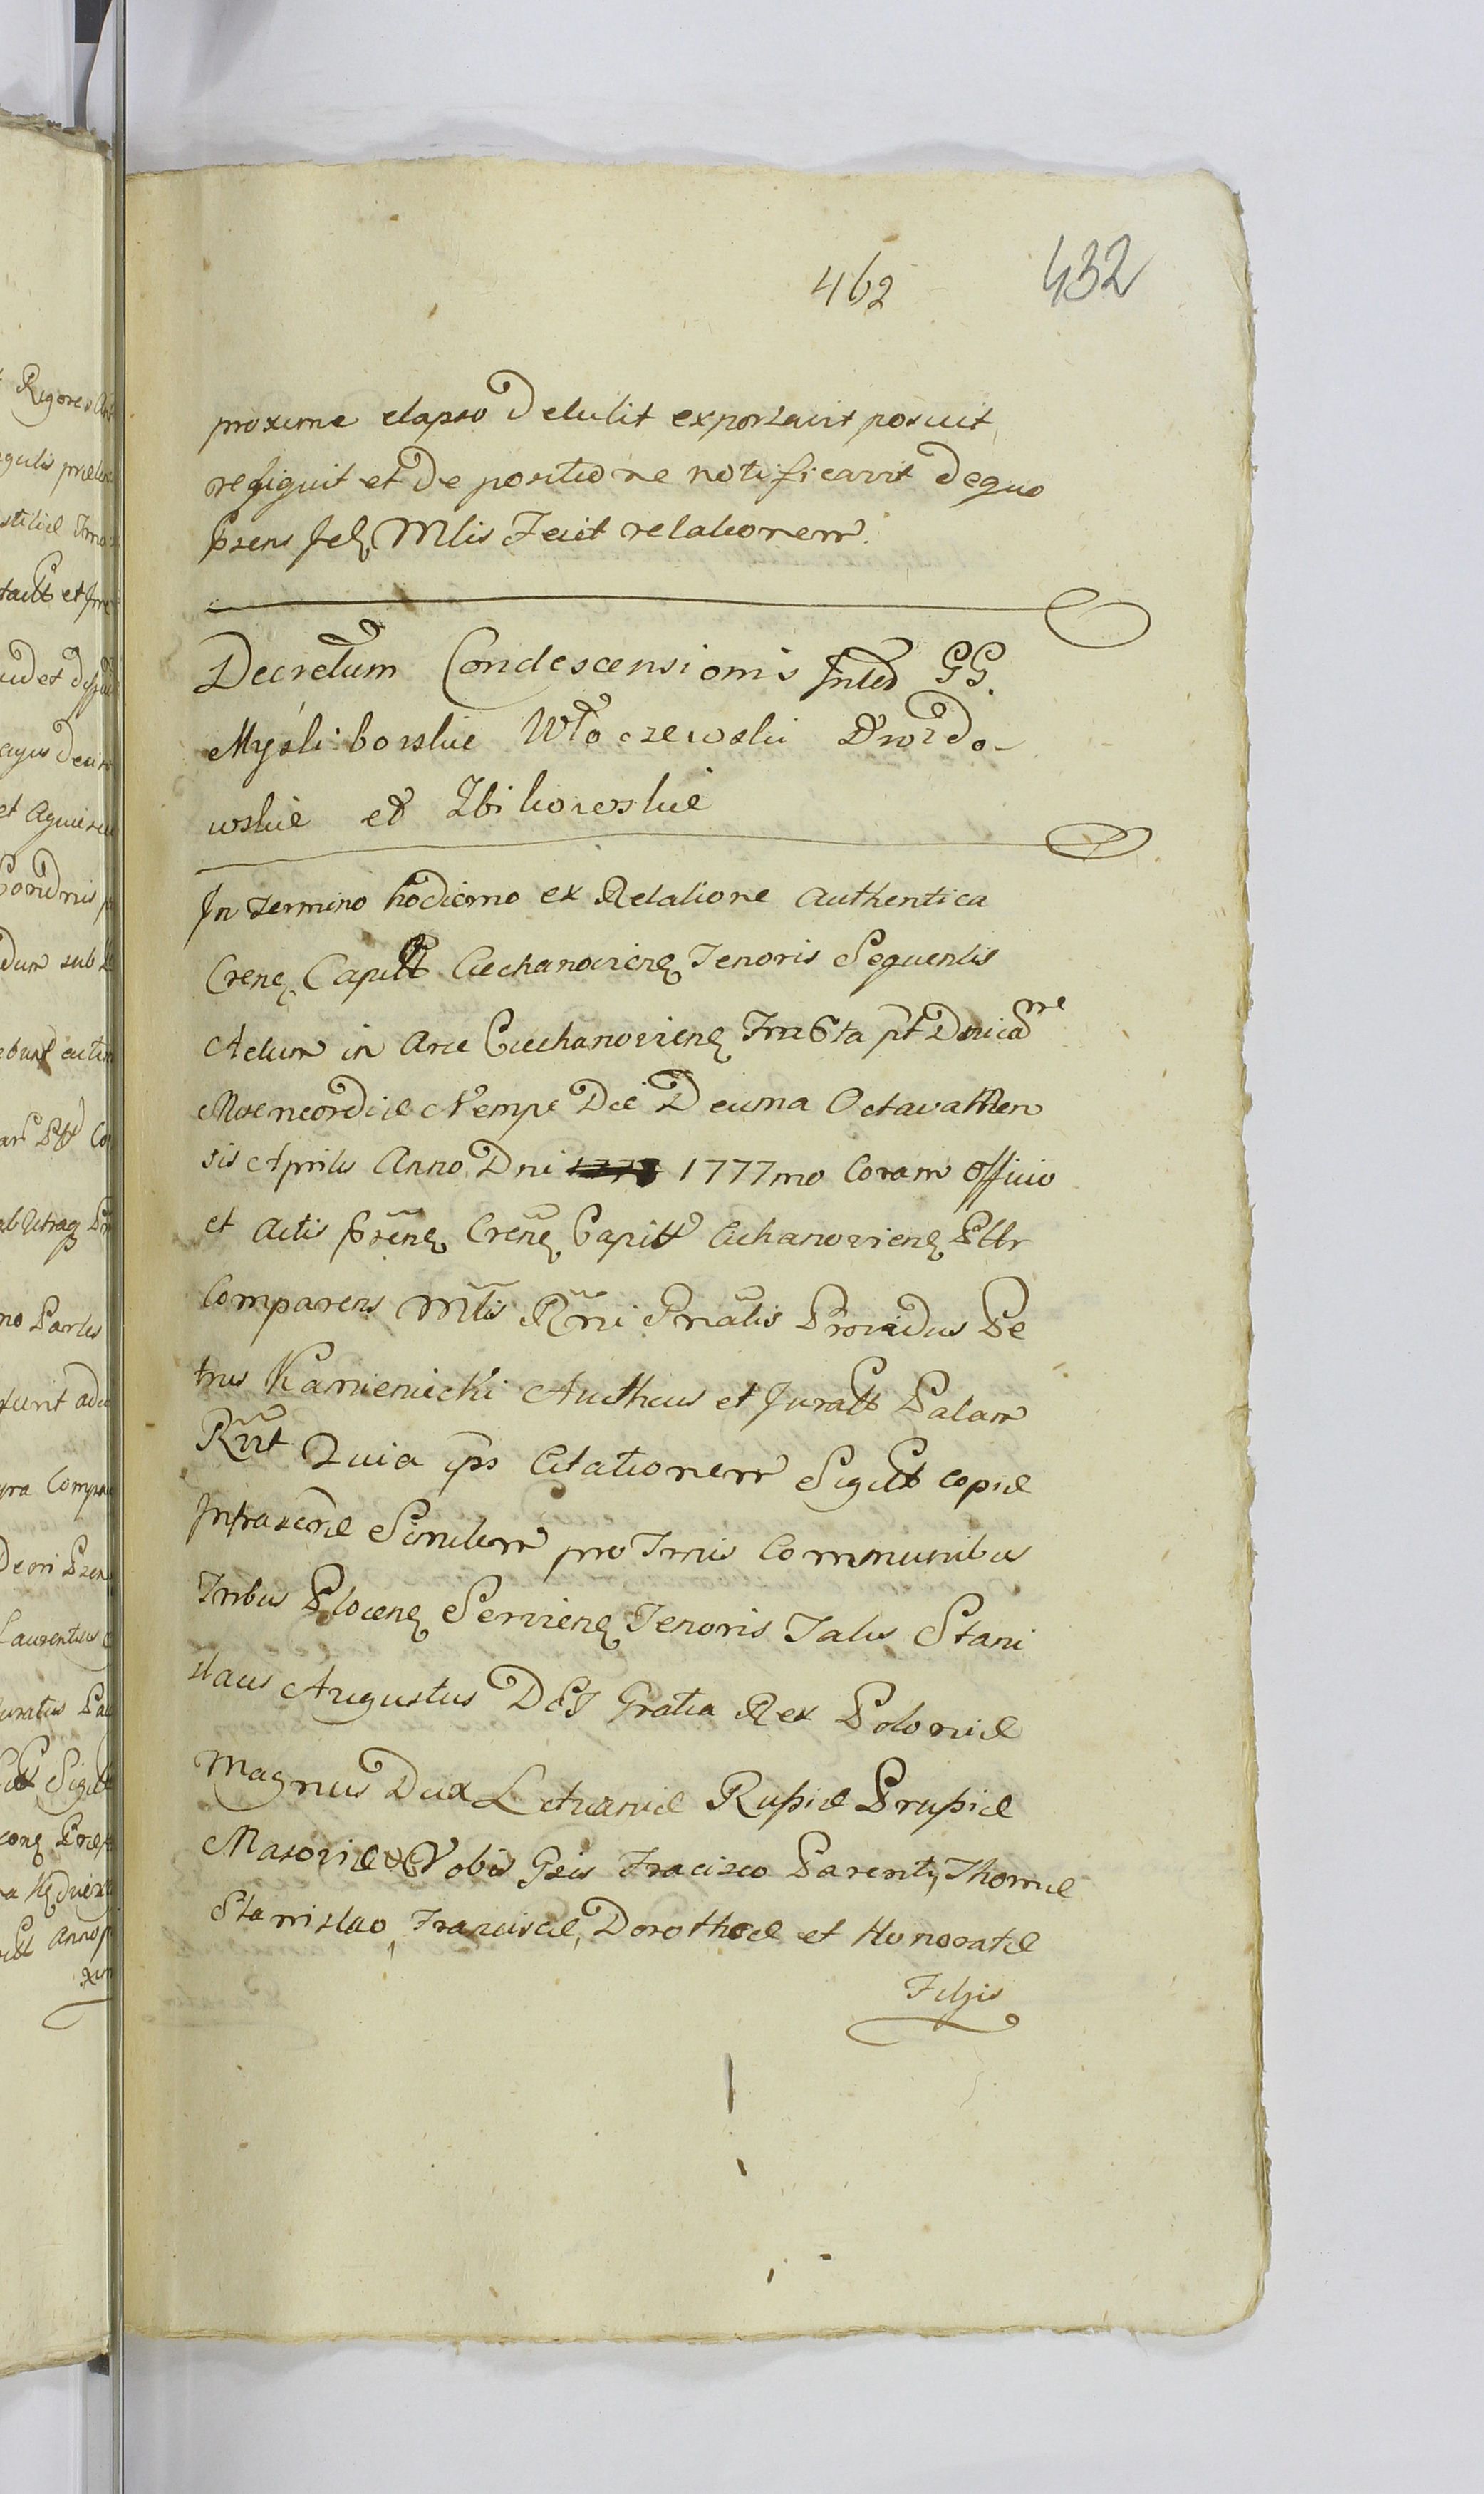 462 432
proxime elapso detulit exportavit posuit,
refiguit et de positione notificavit de quo
Prsens Jdq Mlis Fecit relationem.
Decretum Condescensionis Inter GG.
Mysli:borskie Włoczewski Drozdo-
wskie et Zbikowskie
In termino hodierno ex Relatione Authentica
Crenq Capitt Ciechanovienq Tenoris Sequentis
Actum in Arce Ciechanovienq Fria 6ta pt Dnicam
Misericordiæ Nempe Die Decima Octava Men
sis Aprilis Anno Dni 1777mo Coram Officio
et Actis Prsenq Crenq Capitt Ciechanovienq Pllr
Comparens Mtlis Rni Gnalis Providus Pe
trus Kamienicki Autheus et Juratt Palam
Rvit Quia ips Citationem Sigillt copiæ
Infrascræ Similem pro Trnis Communibus
Tribus Plocenq Servienq Tenoris Talis Stani
slaus Augustus DEI Gratia Rex Poloniæ
Magnus Dux Lituaniæ Russiæ Prussiæ
Masoviæ & Vobis Gsis Fracisco Parenty, Thomæ
Stanislao, Franciscæ, Dorotheæ et Honoratæ
Filyis
Rigores
et Aguis
dum sub
ab Utraq
no Partes
Laurentius
uratus Pa
Anno